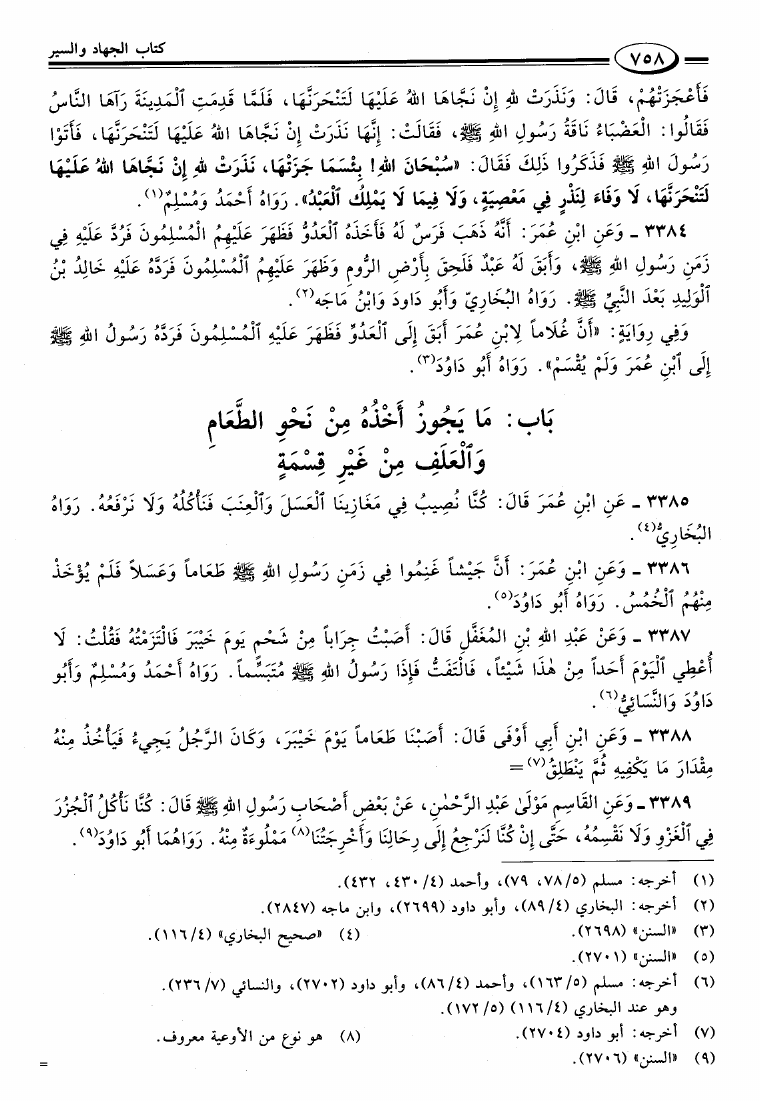 كتاب الجهاد والسير
٧٥٨
فَأَعْجَزَتْهُمْ، قَالَ: وَنَذَرَتْ لله إِنْ نَجَّاهَا اللهُ عَلَيْهَا لَتَنْحَرَنَّهَا، فَلَمَّا قَدِمَتِ ٱلْمَدِينَةَ رَآهَا النَّاسُ
فَقَالُوا: الْعَضْبَاءُ نَاقَةُ رَسُولِ اللهِ ﷺ، فَقَالَتْ: إِنَّهَا نَذَرَتْ إِنْ نَجَّاهَا اللهُ عَلَيْهَا لَتَنْحَرَنَّهَا، فَأَتَوْا
رَسُولَ اللهِ ﷺ فَذَكَرُوا ذَلِكَ فَقَالَ: «سُبْحَانَ اللهِ! بِئْسَمَا جَزَتْهَا، نَذَرَتْ للهِ إِنْ نَجَّاهَا اللهُ عَلَيْهَا
لَتَنْحَرَنَّهَا، لَا وَفَاءَ لِنَذْرٍ فِي مَعْصِيَةٍ، وَلَا فِيمَا لَا يَمْلِكُ ٱلْعَبْدُ». رَوَاهُ أَحْمَدُ وَمُسْلِمٌ(١).
٣٣٨٤ ـ وَعَنِ ابْنِ عُمَرَ: أَنَّهُ ذَهَبَ فَرَسٌ لَهُ فَأَخَذَهُ ٱلْعَدُوُّ فَظَهَرَ عَلَيْهِمُ الْمُسْلِمُونَ فَرُدَّ عَلَيْهِ فِي
زَمَنِ رَسُولِ اللهِ ﷺ، وَأَبَقَ لَهُ عَبْدٌ فَلَحِقَ بِأَرْضِ الرُّومِ وَظَهَرَ عَلَيْهِمُ ٱلْمُسْلِمُونَ فَرَدَّهُ عَلَيْهِ خَالِدُ بْنُ
ٱلْوَلِيدِ بَعْدَ النَّبِيِّ ﷺ. رَوَاهُ البُخَارِيّ وَأَبُو دَاودَ وَابْنُ مَاجَه(٢).
وَفِي رِوَايَةٍ: «أَنَّ غُلَاماً لِابْنِ عُمَرَ أَبَقَ إِلَى ٱلْعَدُوِّ فَظَهَرَ عَلَيْهِ ٱلْمُسْلِمُونَ فَرَدَّهُ رَسُولُ اللهِ ﷺ
إِلَى ٱبْنِ عُمَرَ وَلَمْ يُقْسَمْ». رَوَاهُ أَبُو دَاوُدَ(٣).
بَاب: مَا يَجُوزُ أَخْذُهُ مِنْ نَحْوِ الطَّعَامِ
وَٱلْعَلَفِ مِنْ غَيْرِ قِسْمَةٍ
٣٣٨٥ ـ عَنِ ابْنِ عُمَرَ قَالَ: كُنَّا نُصِيبُ فِي مَغَازِينَا ٱلْعَسَلَ وَٱلْعِنَبَ فَنَأْكُلُهُ وَلَا نَرْفَعُهُ. رَوَاهُ
البُخَارِيُّ(٤).
٣٣٨٦ ـ وَعَنِ ابْنِ عُمَرَ: أَنَّ جَيْشاً غَنِمُوا فِي زَمَنِ رَسُولِ اللهِ ﷺ طَعَاماً وَعَسَلاً فَلَمْ يُؤْخَذْ
مِنْهُمُ ٱلْخُمُسُ. رَوَاهُ أَبُو دَاوُدَ(٥).
٣٣٨٧ ـ وَعَنْ عَبْدِ اللهِ بْنِ المُغَفَّلِ قَالَ: أَصَبْتُ جِرَاباً مِنْ شَحْمٍ يَومَ خَيْبَرَ فَالْتَزَمْتُهُ فَقُلْتُ: لَا
أُعْطِي ٱلْيَوْمَ أَحَداً مِنْ هٰذَا شَيْئاً، فَالْتَفَتُّ فَإِذَا رَسُولُ اللهِ ﷺ مُتَبَسِّماً. رَوَاهُ أَحْمَدُ وَمُسْلِمٌ وَأَبُو
دَاوُدَ وَالنَّسَائِيُّ(٦).
٣٣٨٨ ـ وَعَنِ ابْنِ أَبِي أَوْفَى قَالَ: أَصَبْنَا طَعَاماً يَوْمَ خَيْبَرَ، وَكَانَ الرَّجُلُ يَجِيءُ فَيَأْخُذُ مِنْهُ
مِقْدَارَ مَا يَكْفِيهِ ثُمَّ يَنْطَلِقُ(٧) =
٣٣٨٩ ـ وَعَنِ القَاسِمِ مَوْلَىٰ عَبْدِ الرَّحْمٰنِ، عَنْ بَعْضِ أَصْحَابِ رَسُولِ اللهِ ﷺ قَالَ: كُنَّا نَأْكُلُ ٱلْجُزُرَ
فِي ٱلْغَزْوِ وَلَا نَقْسِمُهُ، حَتَّى إِنْ كُنَّا لَنَرْجِعُ إِلَى رِحَالِنَا وَأَخْرِجَتُنَا(٨) مَمْلُوءَةٌ مِنْهُ. رَوَاهُمَا أَبُو دَاوُدَ(٩).
(١) أخرجه: مسلم (٥/ ٧٨، ٧٩)، وأحمد (٤/ ٤٣٠، ٤٣٢).
(٢) أخرجه: البخاري (٤/ ٨٩)، وأبو داود (٢٦٩٩)، وابن ماجه (٢٨٤٧).
(٣) «السنن» (٢٦٩٨). (٤) «صحيح البخاري» (٤/ ١١٦).
(٥) «السنن» (٢٧٠١).
(٦) أخرجه: مسلم (٥/ ١٦٣)، وأحمد (٤/ ٨٦)، وأبو داود (٢٧٠٢)، والنسائي (٧/ ٢٣٦).
وهو عند البخاري (٤/ ١١٦) (٥/ ١٧٢).
(٧) أخرجه: أبو داود (٢٧٠٤). (٨) هو نوع من الأوعية معروف.
(٩) «السنن» (٢٧٠٦).
=